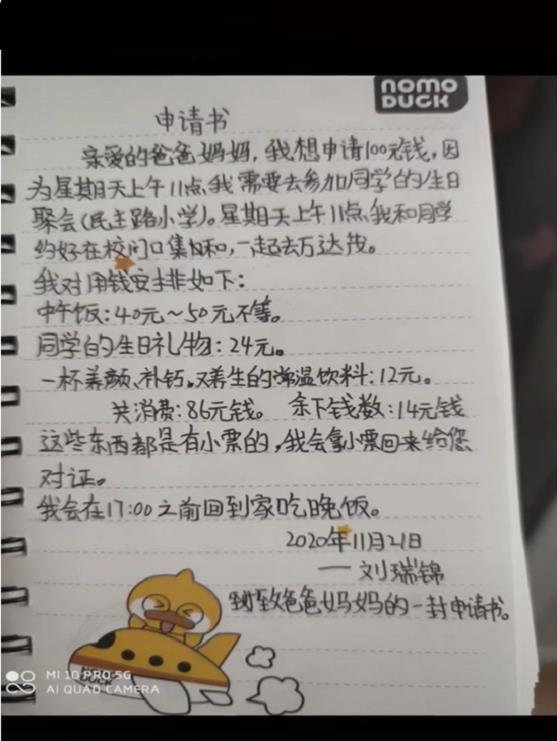 nomo
DUCK
申请书
亲爱的爸爸妈妈，我想申请100元钱，因
为星期天上午11点我需要去参加同学的生日
聚会(民主路小学)。星期天上午11点我和同学
约好在校门口集和，一起去万达茂。
我对用钱安排如下：
中午饭：40元～50元不等。
同学的生日礼物：24元。
一杯养颜、补钙。又养生的常温饮料：12元。
共消费：86元钱。余下钱数：14元钱
这些东西都是有小票的，我会拿小票回来给您
对证。
我会在17:00之前回到家吃晚饭。
2020年11月21日
——刘瑞锦
致爸爸妈妈的一封申请书。
DUCK
MI 10 PRO 5G
AI QUAD CAMERA